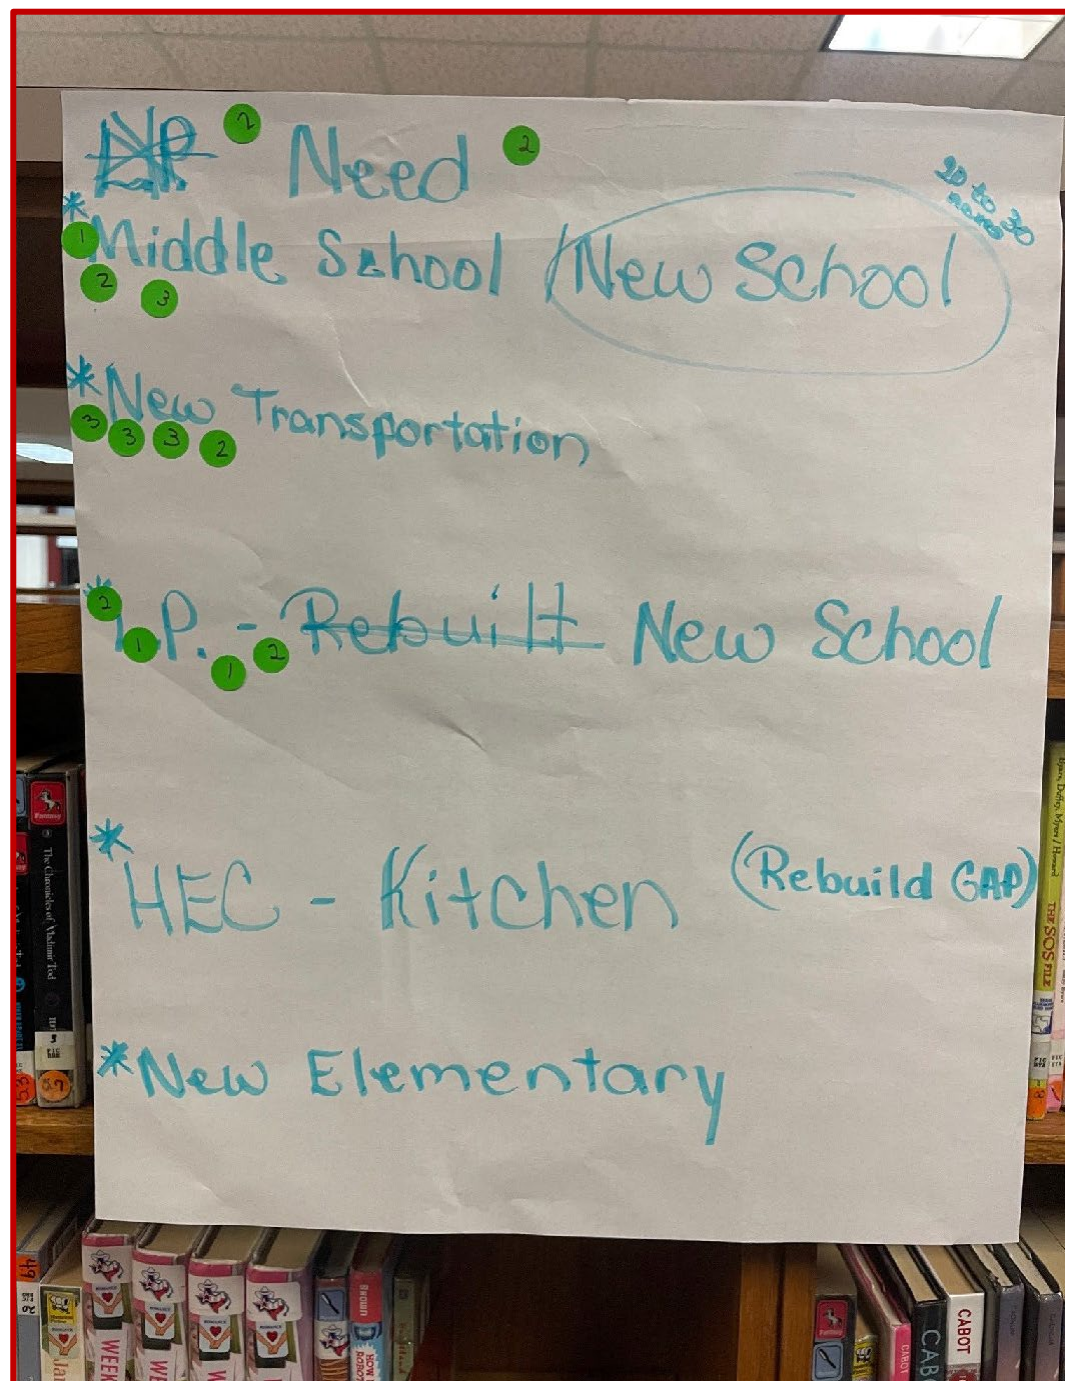 2 Need 2
20 to 30
*
1 Middle School / New School
2 3
*New Transportation
3 3 3 2
2
1 .P. - Rebuilt New School
1 2
*
HEC - Kitchen (Rebuild GAP)
*New Elementary
Fantasy
The Chronicles of Vladimir Tod
THE SOS FILE
49
WEEK
WE
HOW
ROBOT
CABOT
CAB
CABOT